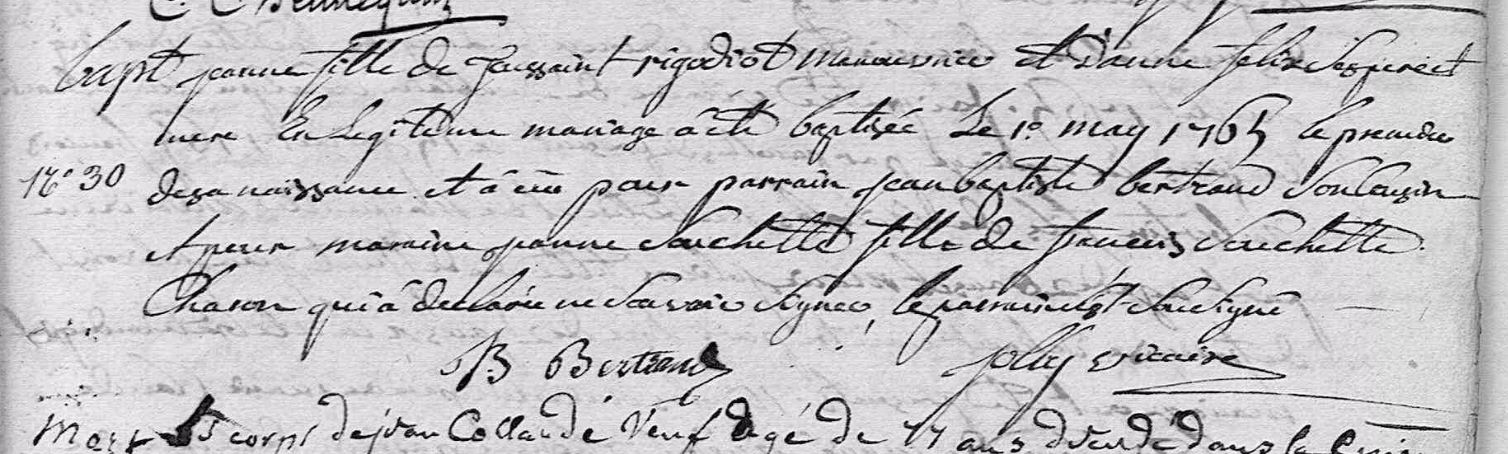 bapt jeanne fille de Toussaint rigodiot manouvrier et d'anne felix ses pere et
mere En Legitime mariage a été baptisée Le 1er may 1765 le premier
N° 30 de sa naissance et a eu pour parrain jean baptiste bertrand
et pour maraine jeanne Souchette fille de francois Souchette
Charon qui a declarée ne Scavoir Signer, le parrain s'est Sousigné
JB Bertrand jolly vicaire
Mort Le corps de jean veuf agé de 77 ans decedé dans la